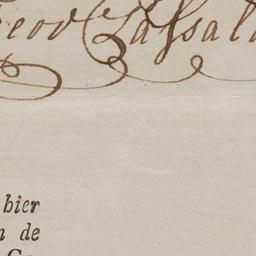 eod Cassal
hier
n de